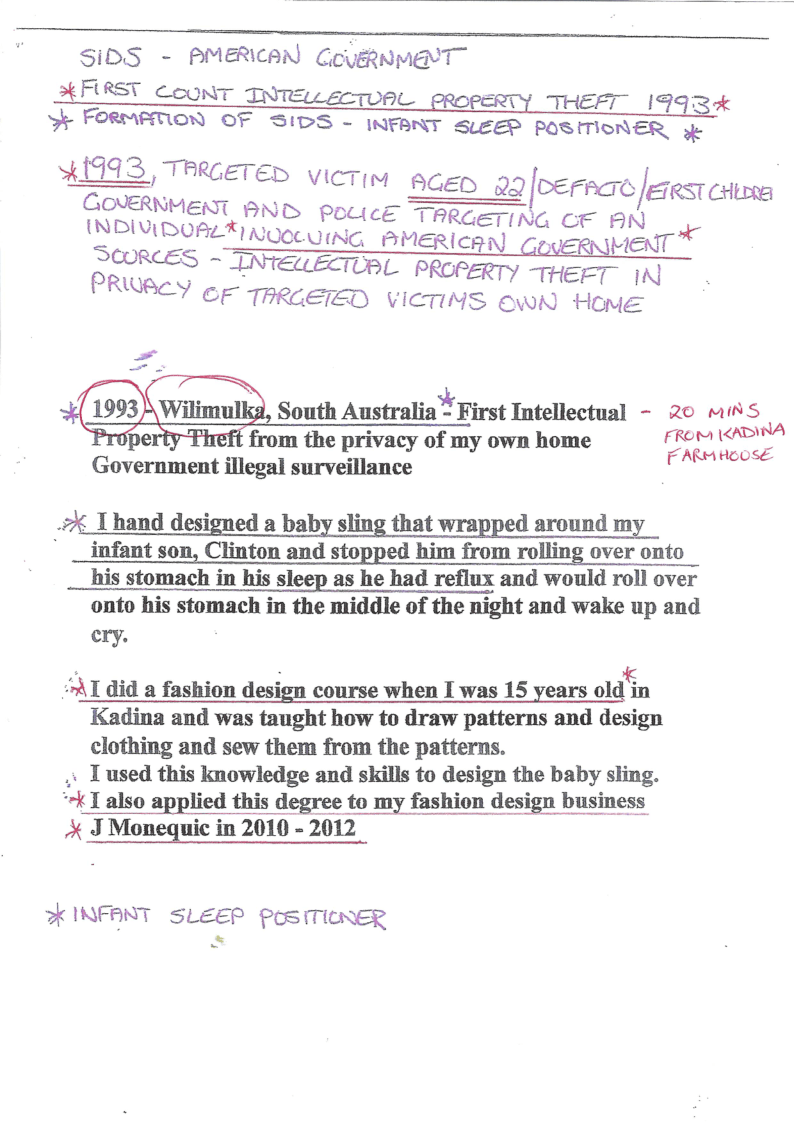 SIDS - AMERICAN GOVERNMENT
* FIRST COUNT INTELLECTUAL PROPERTY THEFT 1993 *
* FORMATION OF SIDS - INFANT SLEEP POSITIONER *
* 1993, TARGETED VICTIM AGED 22/DEFACTO/FIRST CHILDREN
GOVERNMENT AND POLICE TARGETING OF AN
INDIVIDUAL * INVOLVING AMERICAN GOVERNMENT *
SOURCES - INTELLECTUAL PROPERTY THEFT IN
PRIVACY OF TARGETED VICTIMS OWN HOME
* 1993 - Wilimulka, South Australia * - First Intellectual - 20 MINS
Property Theft from the privacy of my own home FROM KADINA
Government illegal surveillance FARMHOUSE
* I hand designed a baby sling that wrapped around my
infant son, Clinton and stopped him from rolling over onto
his stomach in his sleep as he had reflux and would roll over
onto his stomach in the middle of the night and wake up and
cry.
* I did a fashion design course when I was 15 years old * in
Kadina and was taught how to draw patterns and design
clothing and sew them from the patterns.
I used this knowledge and skills to design the baby sling.
* I also applied this degree to my fashion design business
* J Monequic in 2010 - 2012
* INFANT SLEEP POSITIONER